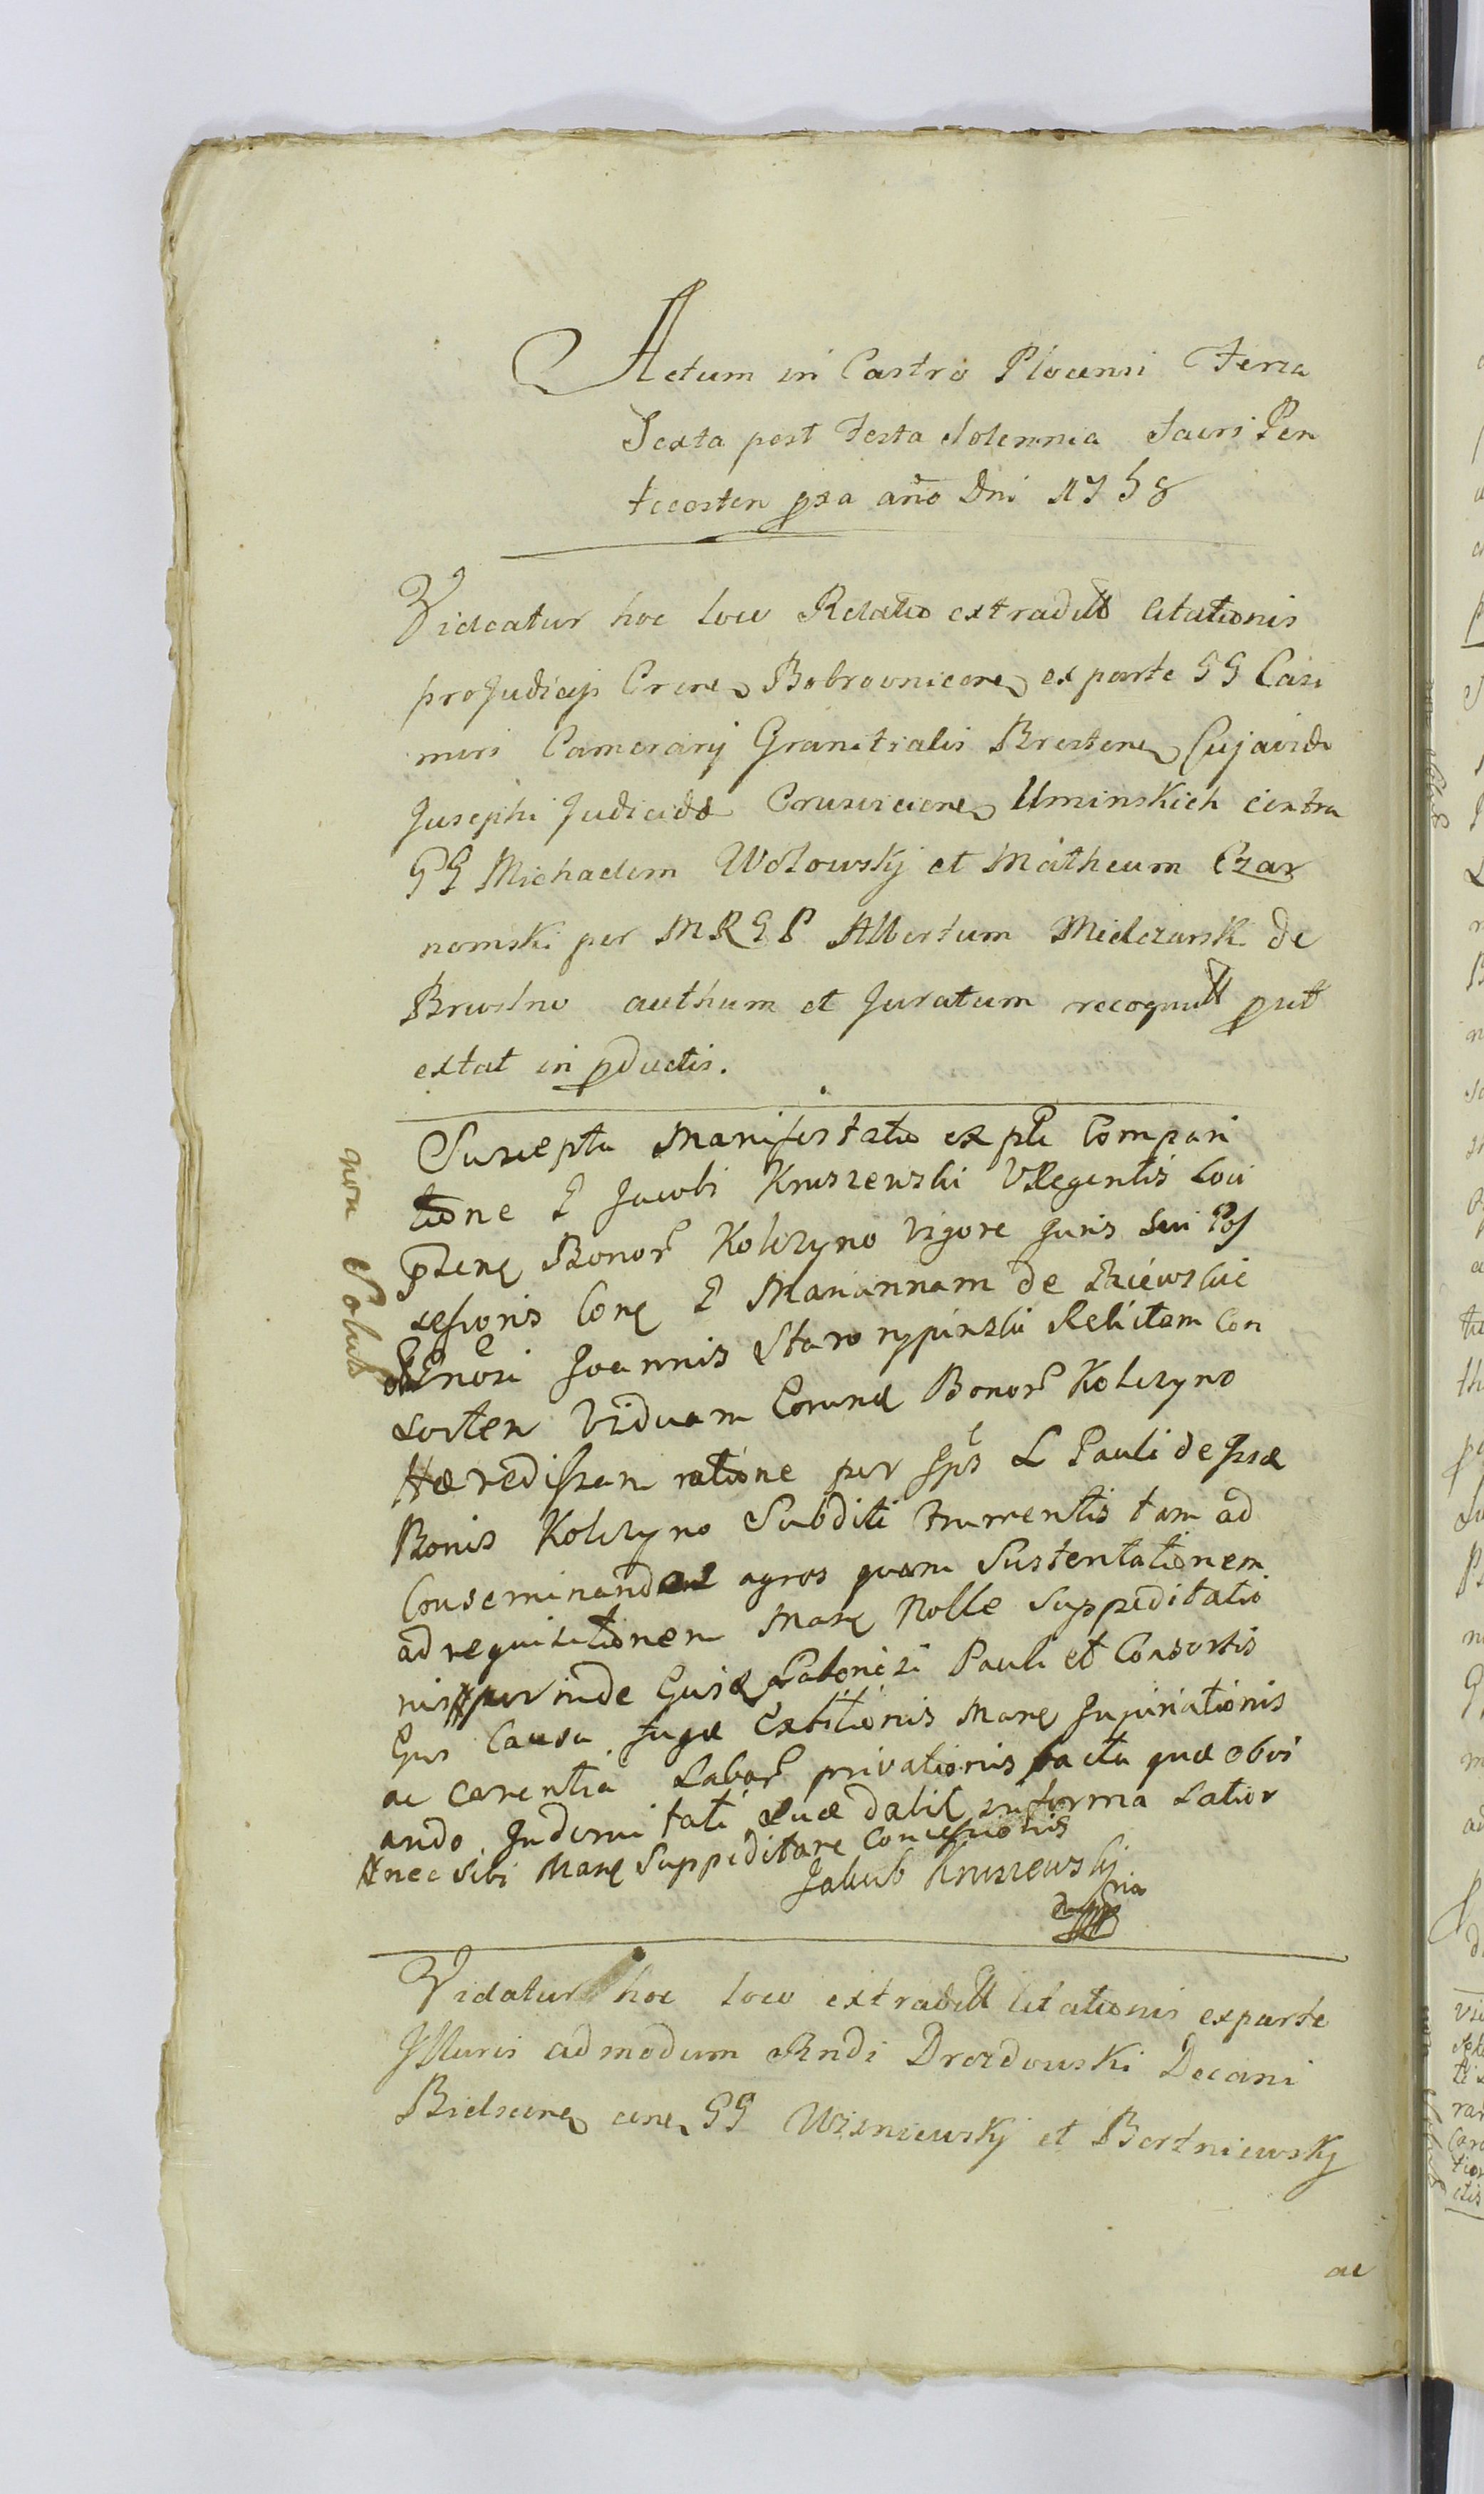 Actum in Castro Plocensi Feria
Sexta post Festa Solemnia Sacri Pen
tecosten pxa año Dni 1758
Videatur hoc loco Relatio extraditt Citationis
pro Judicijs Cren Bobrovnicen ex parte GG Casi
miri Camerarij Granitialis Bresten Cujavidi
Josephi Judicids Crusvicien Uminskich contra
GG Michaelem Wolowskÿ et Matheum Czar
nomski per MRGP Albertum Mielczarsk de
Brwilno authum et Juratum recognitt prut
extat in pductis.
non Solut
Suscepta Manifestatio ex pte Compari
tione G Jacobi Kruszewski VRegentis loci
pzen Bonor Kolczyno vigore Juris sui Pos
sessoris Con G Mariannam de
Gnosi Joannis Starorypinski Relictam Con
sorten Viduam Bonor Kolczyno
Hæredissam ratione per L Pauli de
Bonis Kolczyno Subditi frumentis tam ad
Conseminand agros quam Sustentationem
ad requisitionem Man Nolle Suppeditatio
nis # per inde Laboriosi Pauli et Consortis
Ejus Causa fugæ Man Injuriationis
ac Carentia Labor privationis facta quæ obvi
ando Indemnitati Suæ in forma Latior
# nec sibi Man Suppeditare Concessionis
Jakub Kruszewskj
Vidatur hoc loco extraditt Citationis ex parte
Jlluris admodum Rndi Drozdowski Decani
Bielscen cen GG Wisniewskÿ et Bortniewskÿ
ac